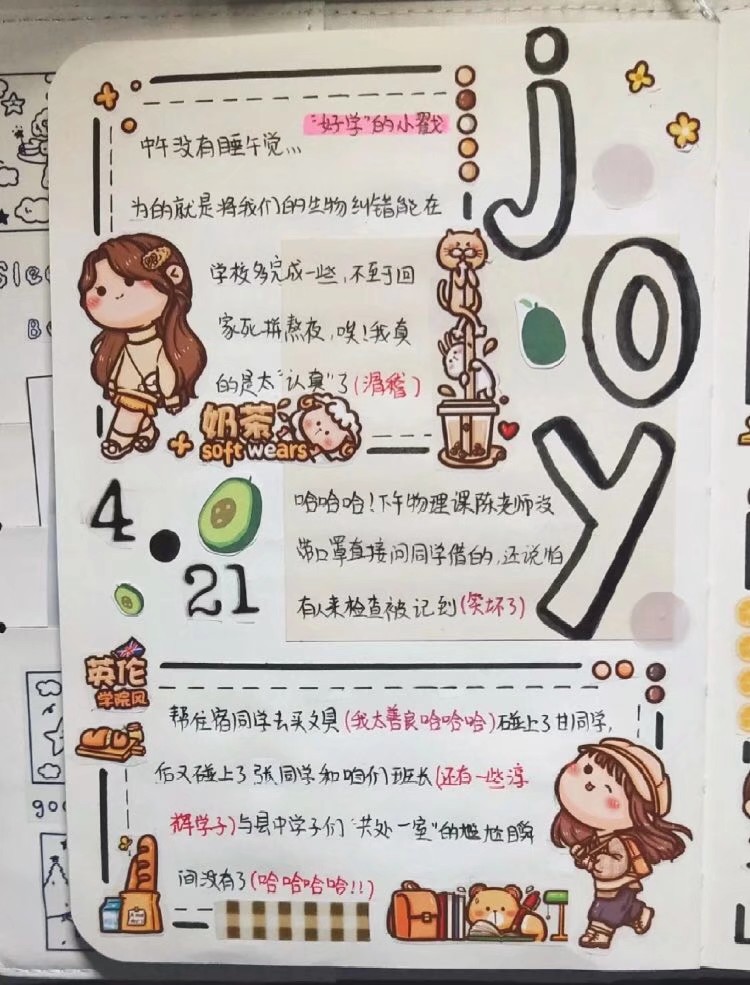 "好学"的小戳
中午没有睡午觉...
为的就是将我们的生物纠错能在
学校多完成一些,不至于回
家死拼熬夜,唉!我真
的是太"认真"了(滑稽)
奶茶
soft wears
joy
4.21
哈哈哈!下午物理课陈老师没
带口罩直接问同学借的,还说怕
有人来检查被记到(笑坏了)
英伦
学院风
帮住宿同学去买文具(我太善良哈哈哈)碰上了甘同学,
后又碰上了张同学和咱们班长(还有一些淳
辉学子)与县中学子们"共处一室"的尴尬瞬
间没有了(哈哈哈哈!!)